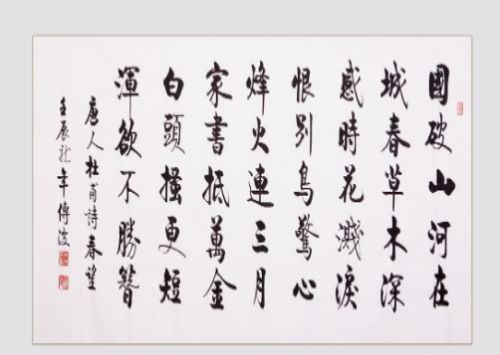 國破山河在
城春草木深
感時花濺淚
恨別鳥驚心
烽火連三月
家書抵萬金
白頭搔更短
渾欲不勝簪
唐人杜甫詩春望
壬辰龍年傳俊